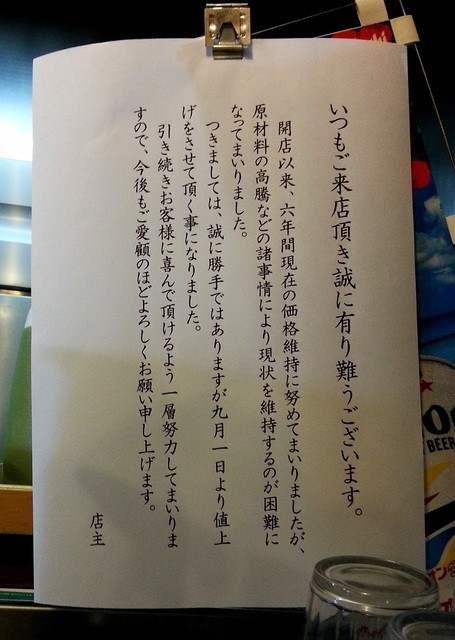 いつもご来店頂き誠に有り難うございます。
開店以来、六年間現在の価格維持に努めてまいりましたが、
原材料の高騰などの諸事情により現状を維持するのが困難に
なってまいりました。
つきましては、誠に勝手ではありますが九月一日より値上
げをさせて頂く事になりました。
引き続きお客様に喜んで頂けるよう一層努力してまいりま
すので、今後もご愛顧のほどよろしくお願い申し上げます。
店主
BEER